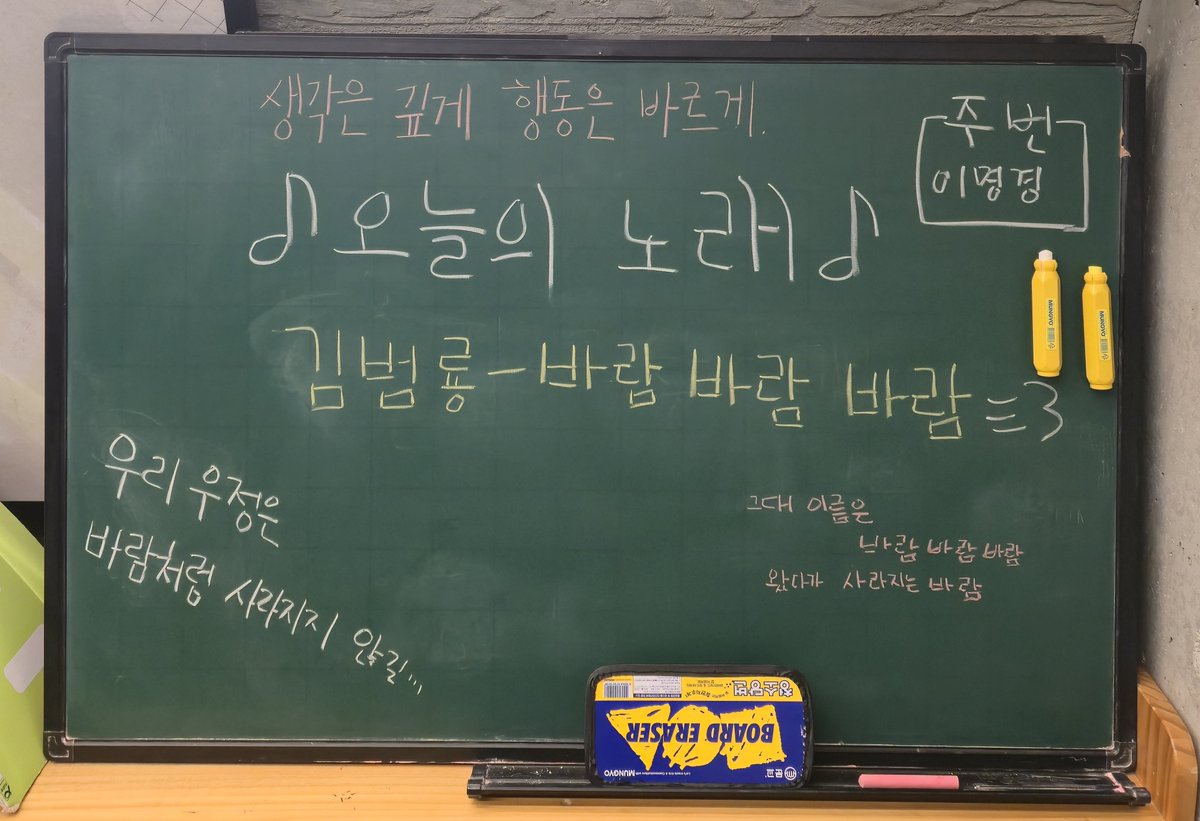 생각은 깊게 행동은 바르게.
주번
이명경
♪오늘의 노래♪
김범룡-바람 바람 바람 ≡3
우리 우정은
바람처럼 사라지지 않길...
그대 이름은
바람 바람 바람
왔다가 사라지는 바람
MUNGYO
MUNGYO
청소당번
BOARD ERASER
MUNGYO
문교